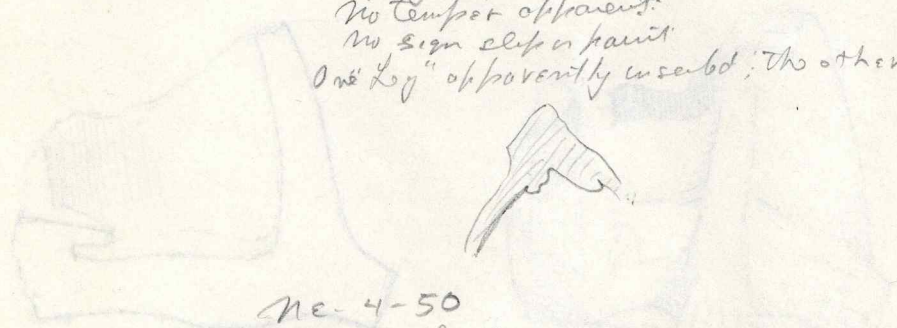 No temper apparent.
No sign slip or paint
One "Leg" apparently inserted; the other
NE-4-50